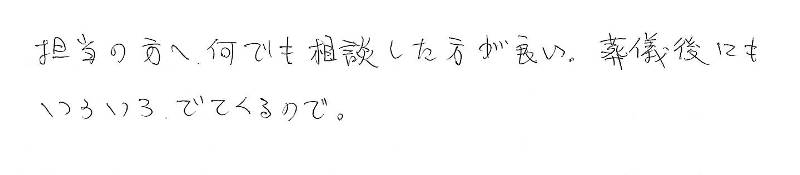 担当の方へ、何でも相談した方が良い。葬儀後にも
いろいろ、でてくるので。